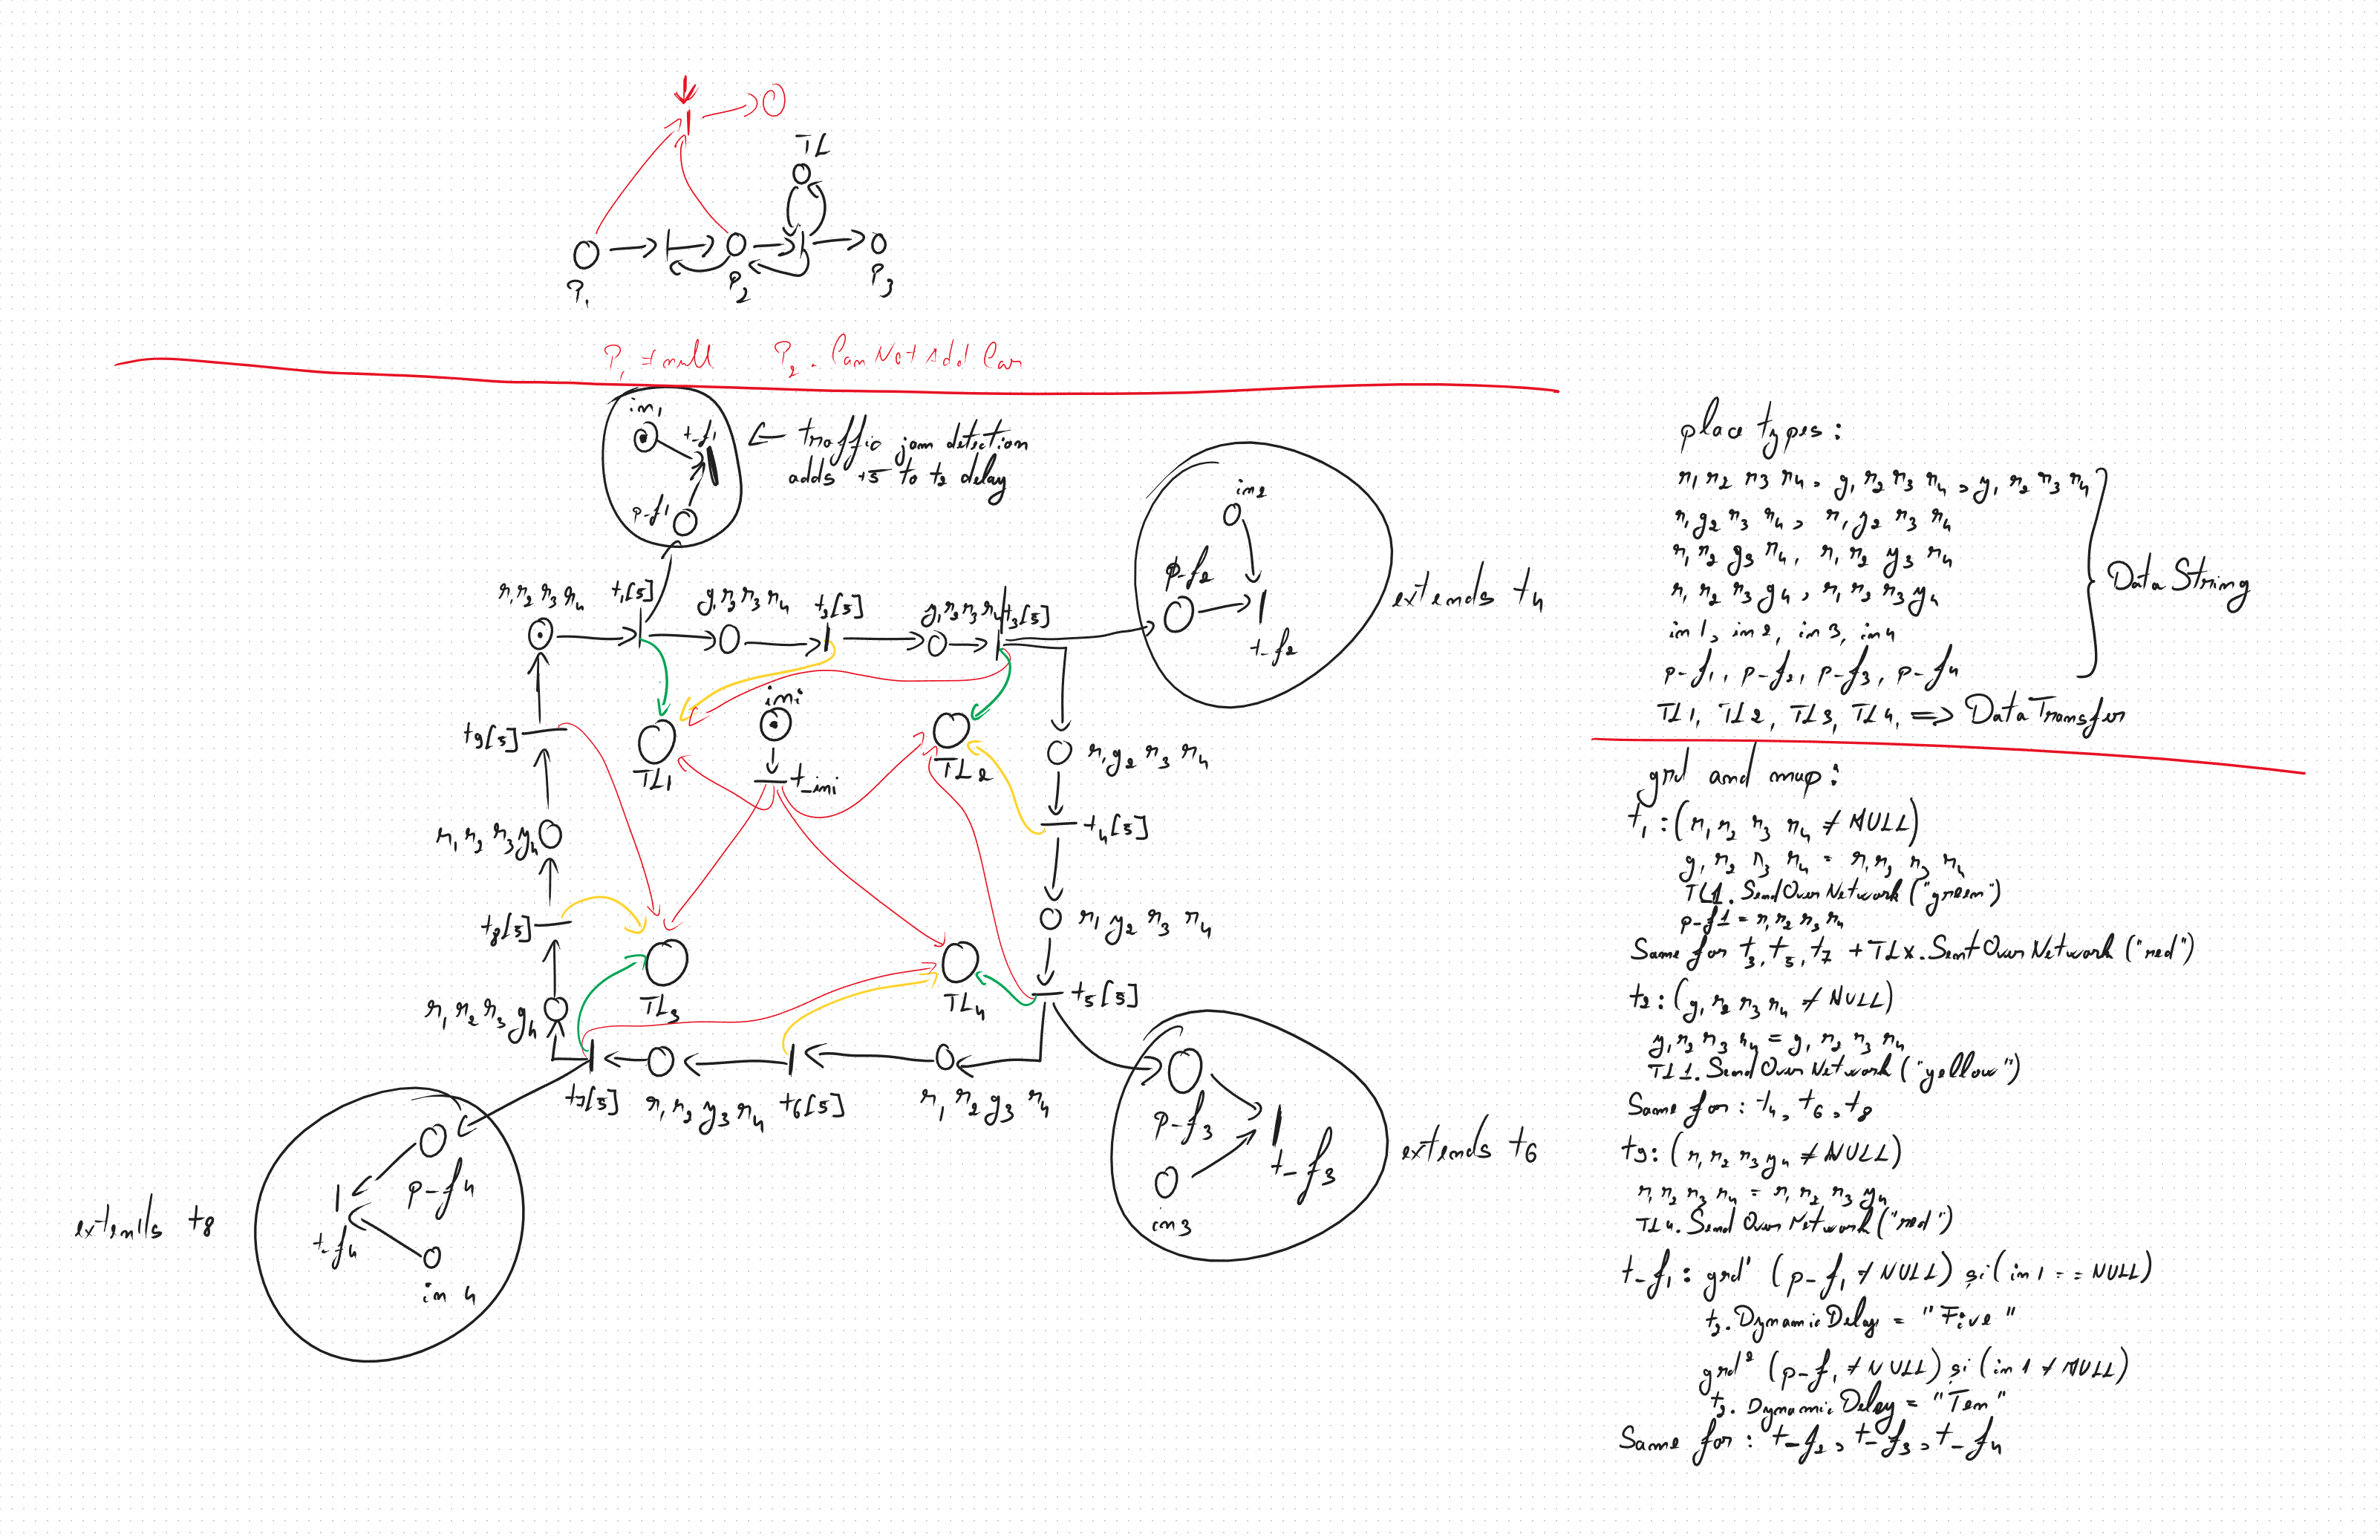 TL
P₁
P₂
P₃
P₁ ≠ null P₂. Can Not Add Car
in₁
t-f₁
p-f₁
← traffic jam detection
adds +5 to t₂ delay
in2
p-f₂
t-f₂
extends t₄
r₁r₂ r₃ r₄
t₁[5]
g₁r₂r₃ r₄
t₂[5]
y₁r₂r₃r₄
t₃[5]
ini
t_ini
TL₁
TL₂
r₁g₂ r₃ r₄
t₄[5]
r₁ y₂ r₃ r₄
t₅[5]
t₉[5]
r₁ r₂ r₃y₄
t₈[5]
r₁ r₂ r₃ g₄
TL₃
TL₄
t₇[5]
r₁ r₂ y₃ r₄
t₆[5]
r₁ r₂ g₃ r₄
p-f₃
t-f₃
in3
extends t₆
extends t₈
p-f₄
t-f₄
in 4
place types:
r₁ r₂ r₃ r₄, g₁ r₂ r₃ r₄, y₁ r₂ r₃ r₄
r₁ g₂ r₃ r₄, r₁ y₂ r₃ r₄
r₁ r₂ g₃ r₄, r₁ r₂ y₃ r₄
r₁ r₂ r₃ g₄, r₁ r₂ r₃ y₄
in 1, in 2, in 3, in 4
p-f₁, p-f₂, p-f₃, p-f₄
Data String
TL1, TL2, TL3, TL4, => DataTransfer
grd and map:
t₁: (r₁ r₂ r₃ r₄ ≠ NULL)
g₁ r₂ r₃ r₄ = r₁ r₂ r₃ r₄
TL1. SendOverNetwork ("green")
p-f1 = r₁ r₂ r₃ r₄
Same for t₃, t₅, t₇ + TLx. Sent Over Network ("red")
t₂: (g₁ r₂ r₃ r₄ ≠ NULL)
y₁ r₂ r₃ r₄ = g₁ r₂ r₃ r₄
TL1. Send Over Network ("yellow")
Same for: t₄, t₆, t₈
t₉: (r₁ r₂ r₃ y₄ ≠ NULL)
r₁ r₂ r₃ r₄ = r₁ r₂ r₃ y₄
TL4. Send Over Network ("red")
t-f₁: grd¹ (p-f₁ ≠ NULL) și (in 1 == NULL)
t₂. Dynamic Delay = "Five"
grd² (p-f₁ ≠ NULL) și (in 1 ≠ NULL)
t₂. Dynamic Delay = "Ten"
Same for: t-f₂, t-f₃, t-f₄